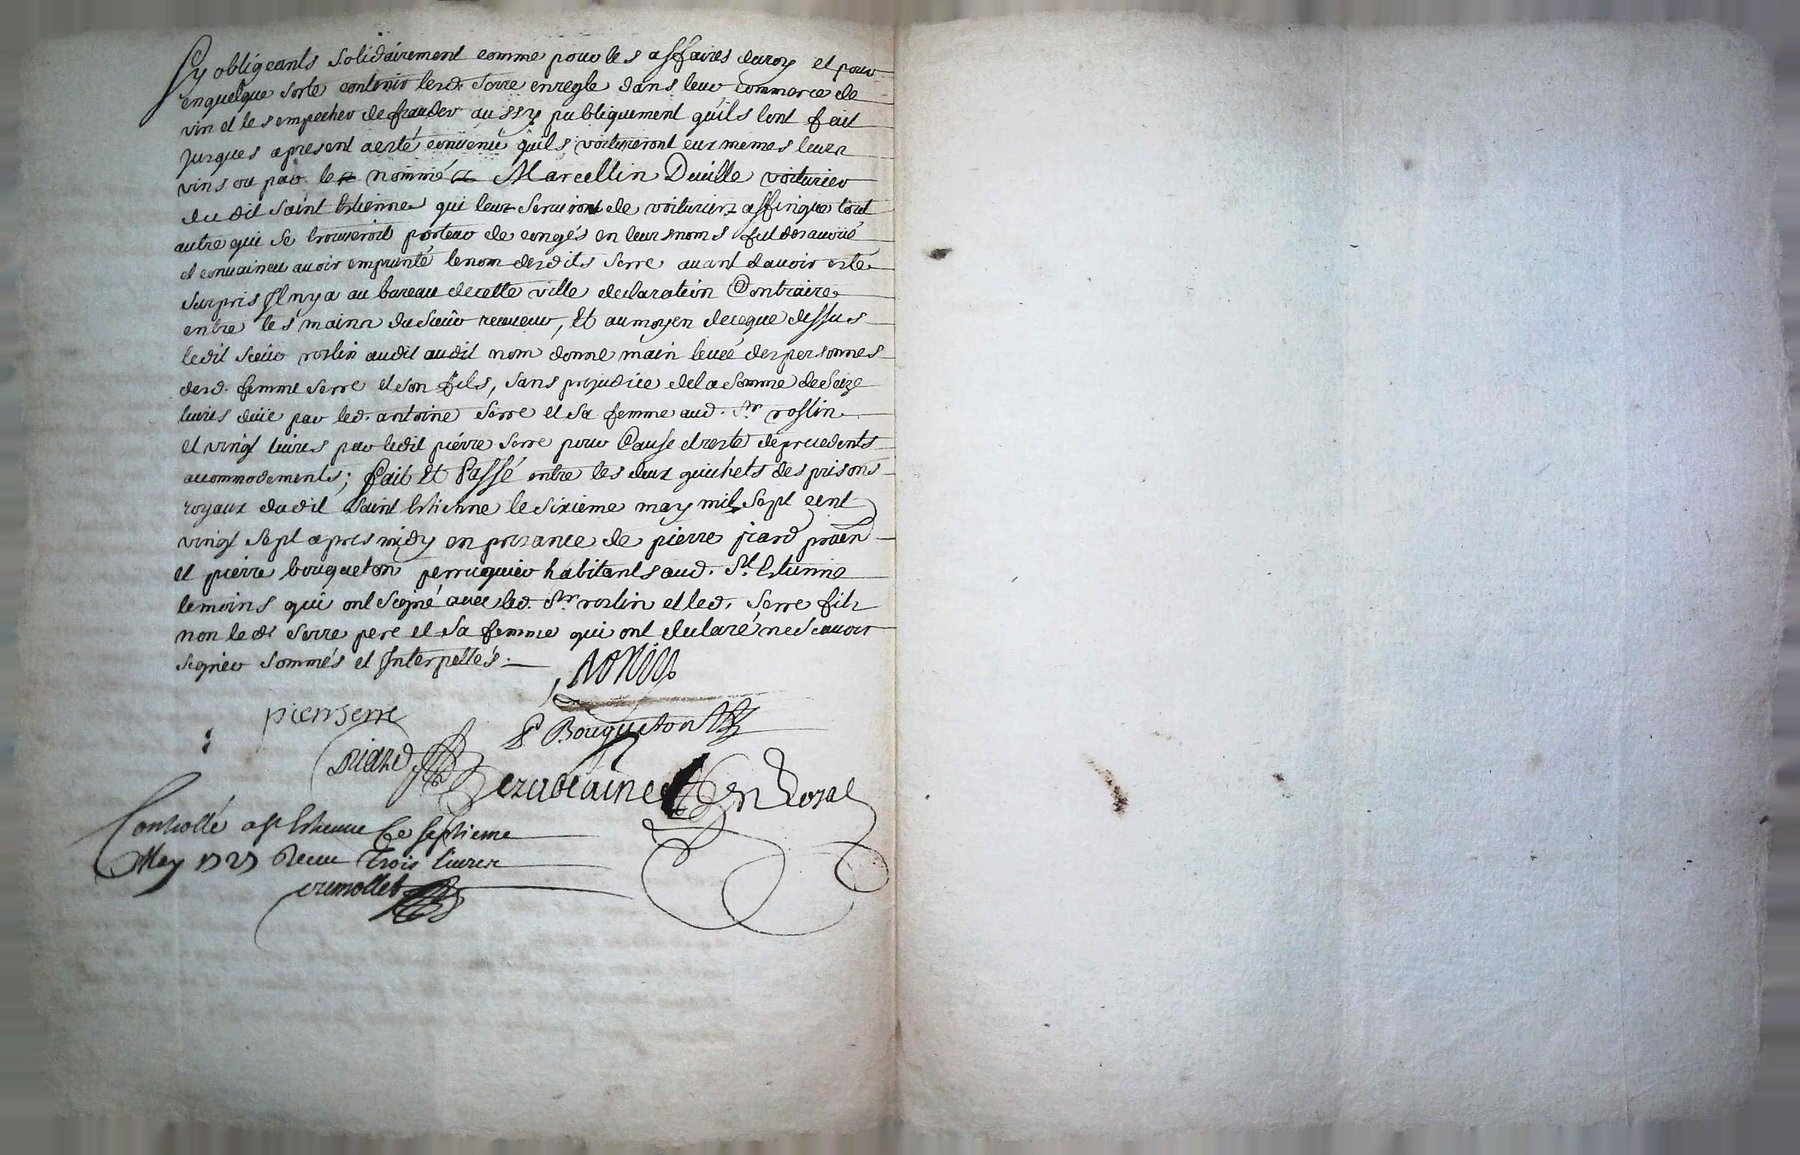 Sy obligeants Solidairement comme pour les affaires du roy et pour
enquelque sorte contenir lesd. Serre en regle dans leur commerce de
vin et les empecher de frauder aussy publiquement quils lont fait
Jusques apresent a esté convenu quils voitureront eux memes leurs
vins ou par le nommé Marcellin Deville voiturier
dudit Saint Estienne qui leur servira de voiturier affinque tout
autre qui se trouveroit porteur de congés en leurs noms fut desavoué
et convaincu avoir emprunté le nom desdits Serre avant davoir esté
surpris Sil ny a au bareau de cette ville declaration Contraire
entre les mains du Sieur receveur, Et au moyen de ceque dessus
ledit Sieur roslin audit audit nom donne main levée des personnes
desd. femme Serre et son fils, sans prejudice de la Somme de Seize
livres deüe par led. antoine Serre et Sa femme aud. Sr roslin
et vingt livres par ledit piérre Serre pour Cause et reste de precedents
accommodements; fait Et Passé entre les deux guichets des prisons
royaux dudit Saint Estienne le sixieme may mil Sept cent
vingt Sept apres midy en presance de pierre piard praen
et pierre bouqueton perruquier habitants aud. St Estienne
temoins qui ont Signé avec led. Sr roslin et led. Serre fils
non led. Serre pere et Sa femme qui ont declaré ne scavoir
signer sommés et Interpellés.
roslin
pierr serre
P Bouqueton
piard
n Royal
Controllé a St Estienne Ce septieme
May 1727 Receu Trois livres